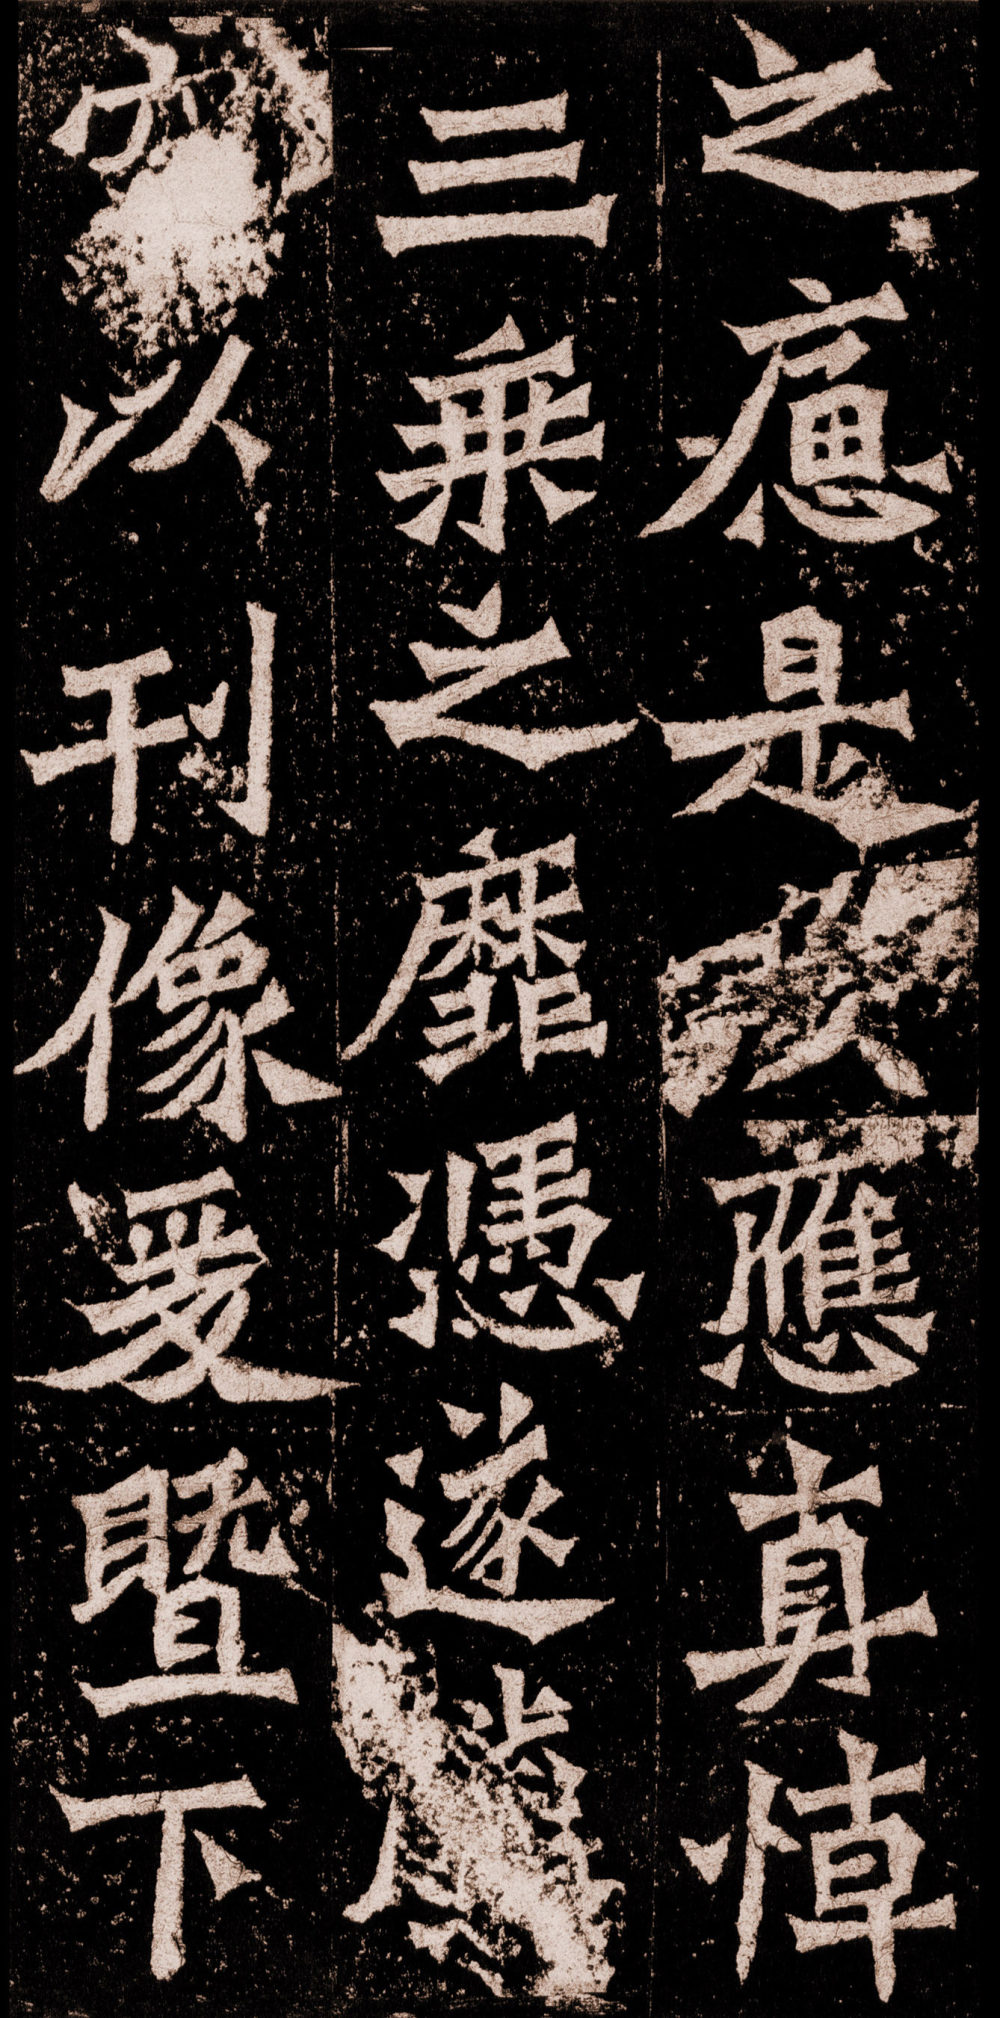 之痛是應真悼
三乘之靡憑遂
以刊像爰暨下